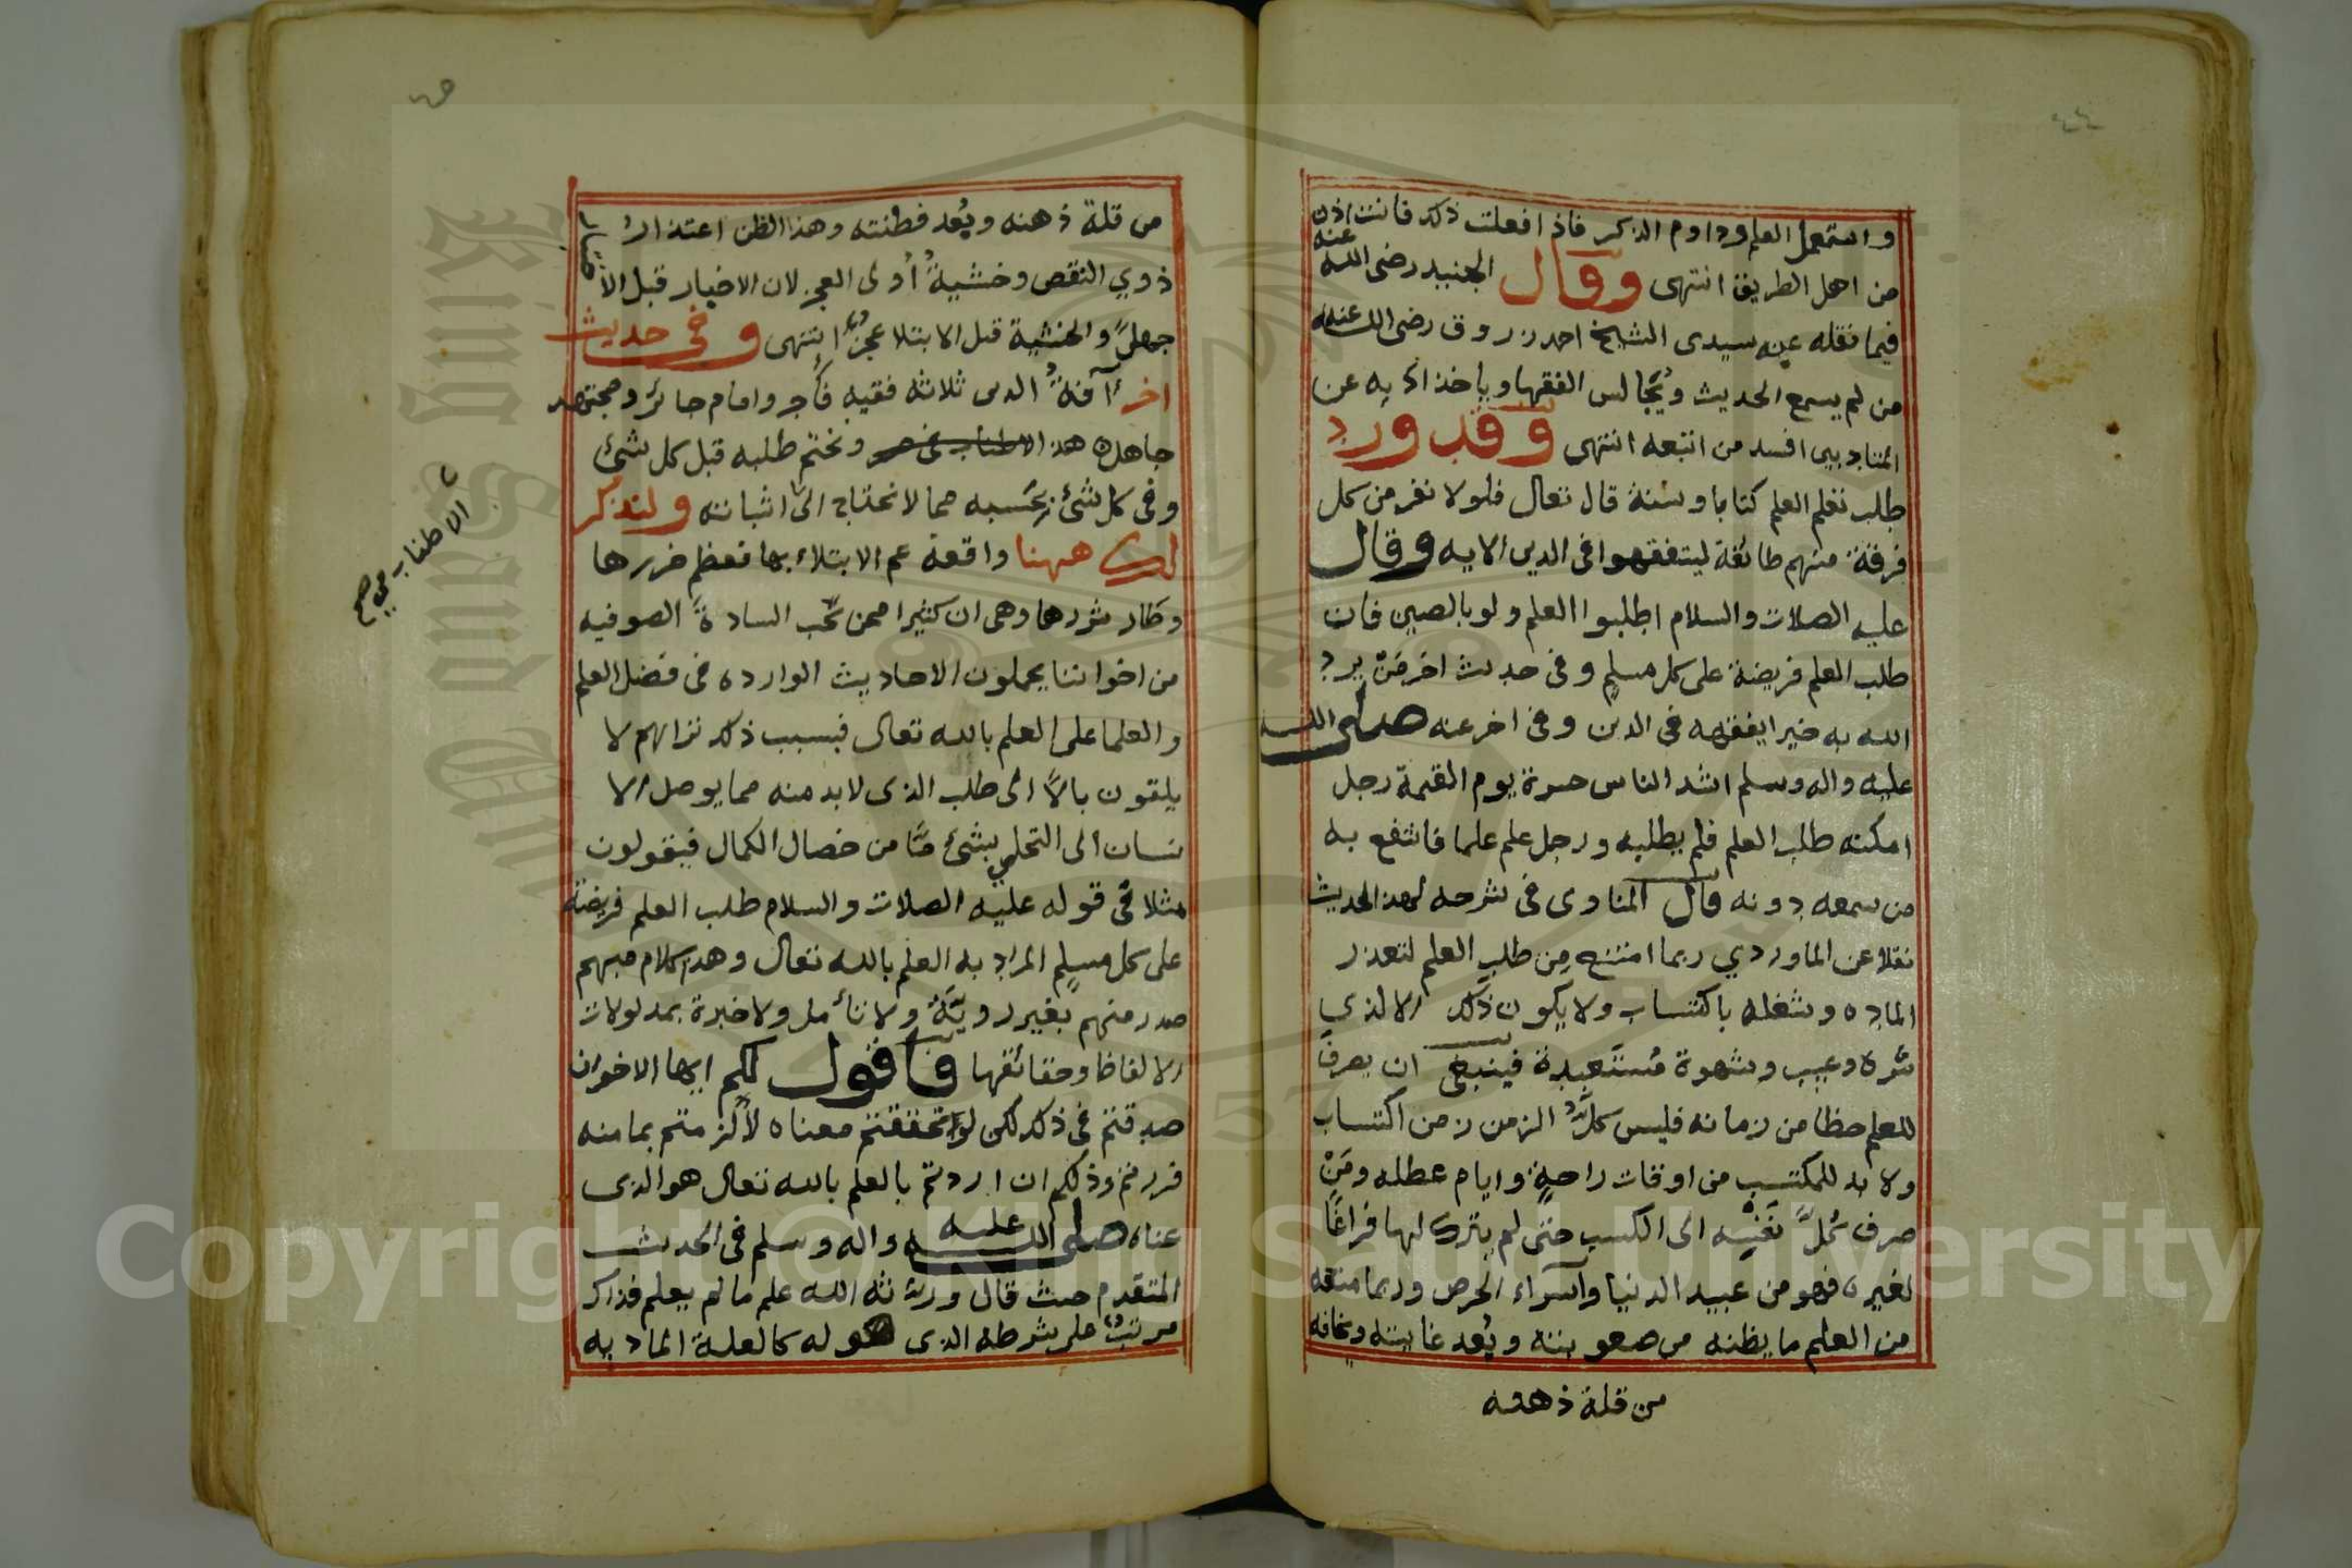 ٤٤
واستعمل العلم وداوم الذكر فاذا فعلت ذلك فانت اذن
من اهل الطريق انتهى وقال الجنيد رضى الله عنه
فيما نقله عنه سيدى الشيخ احمد زروق رضى الله عنه
من لم يسمع الحديث ويُجالس الفقها وياخذ ادبه عن
المتادبين افسد من اتبعه انتهى وقد ورد
طلب تعلم العلم كتابا وسنة قال تعالى فلولا نفر من كل
فرقة منهم طائفة ليتفقهوا فى الدين الايه وقال
عليه الصلات والسلام اطلبوا العلم ولو بالصين فان
طلب العلم فريضة على كل مسلم وفى حديث اخر مَنْ يرد
الله به خيرا يفقهه فى الدين وفى اخر عنه صلى الله
عليه واله وسلم اشد الناس حسرة يوم القيمة رجل
امكنه طلب العلم فلم يطلبه ورجل علم علما فانتفع به
من سمعه دونه قال المناوى فى شرحه لهذا الحديث
نقلا عن الماوردي ربما امتنع مِن طلب العلم لتعذر
الماده وشغله باكتساب ولا يكون ذلك الا لذي
شره وعيب وشهوة مُستَعبِدة فينبغى ان يصرف
للعلم حظا من زمانه فليس كلُّ الزمن زمن اكتساب
ولا بد للمكتسب من اوقات راحةٍ وايام عطله ومَنْ
صرف كُلَّ نفسه الى الكسب حتى لم يترك لها فراغًا
لغيره فهو من عبيد الدنيا وأسراء الحرص وربما منعه
من العلم ما يظنه من صعوبته وبُعد غايته ومخافه
من قلة ذهنه
من قلة ذهنه وبُعد فطنته وهذا الظن اعتذارُ
ذوي النقص وخشيةُ أولى العجز لان الاخبار قبل الا
جهلٌ والخشية قبل الابتلا عجزٌ انتهى وفى حديث
اخر آفةُ الدين ثلاثه فقيه فاجر وامام جائر ومجتهد
جاهل هذا الاطناب فى ونختم طلبه قبل كل شئ
وفى كل شئ بحسبه مما لا نحتاج الى اثباته ولنذكر
لك ههنا واقعة عم الابتلاء بها فعظم ضررها
وطار شررها وهى ان كثيرا ممن يُحب السادةَ الصوفيه
من اخواننا يحملون الاحاديث الوارده فى فضل العلم
والعلما على العلم بالله تعالى فبسبب ذلك تراهم لا
يلقون بالاً الى طلب الذى لابد منه مما يوصل الا
نسان الى التحلي بشئ مّا من خصال الكمال فيقولون
مثلا فى قوله عليه الصلات والسلام طلب العلم فريضة
على كل مسلمٍ المراد به العلم بالله تعالى وهذا كلام مبهم
صدر منهم بغير رويّة ولا تأمل ولا خبرة بمدلولات
الالفاظ وحقائقها فاقول لكم ايها الاخوان
صدقتم فى ذلك لكن لو تحققتم معناه لألزمتم بما منه
فررتم وذلكم ان اردتم بالعلم بالله تعالى هو الذى
عناه صلى الله عليه واله وسلم فى الحديث
المتقدم حيث قال ورثه الله علم ما لم يعلم فذاك
مرتبٌ على شرطه الذى هو له كالعلة المادية
الاطناب صح